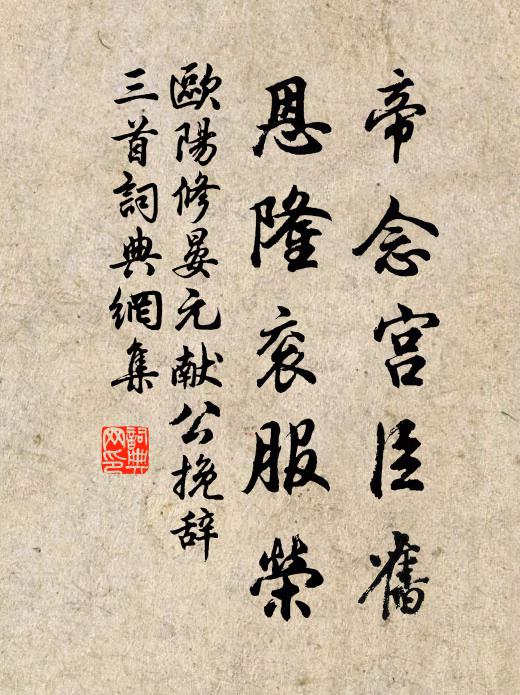 帝念宫臣舊
恩隆衮服榮
歐陽修晏元献公挽辞
三首詞典網集
詞典
网印